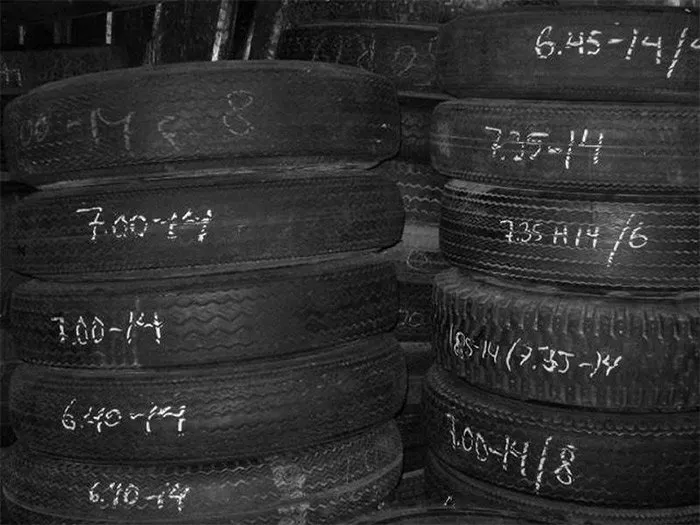 00-14 8
7.00-14
7.00-14
6.40-14
6.40-14
6.45-14/4
7.35-14
7.35 H14/6
185-14 (7.35-14
7.00-14/8